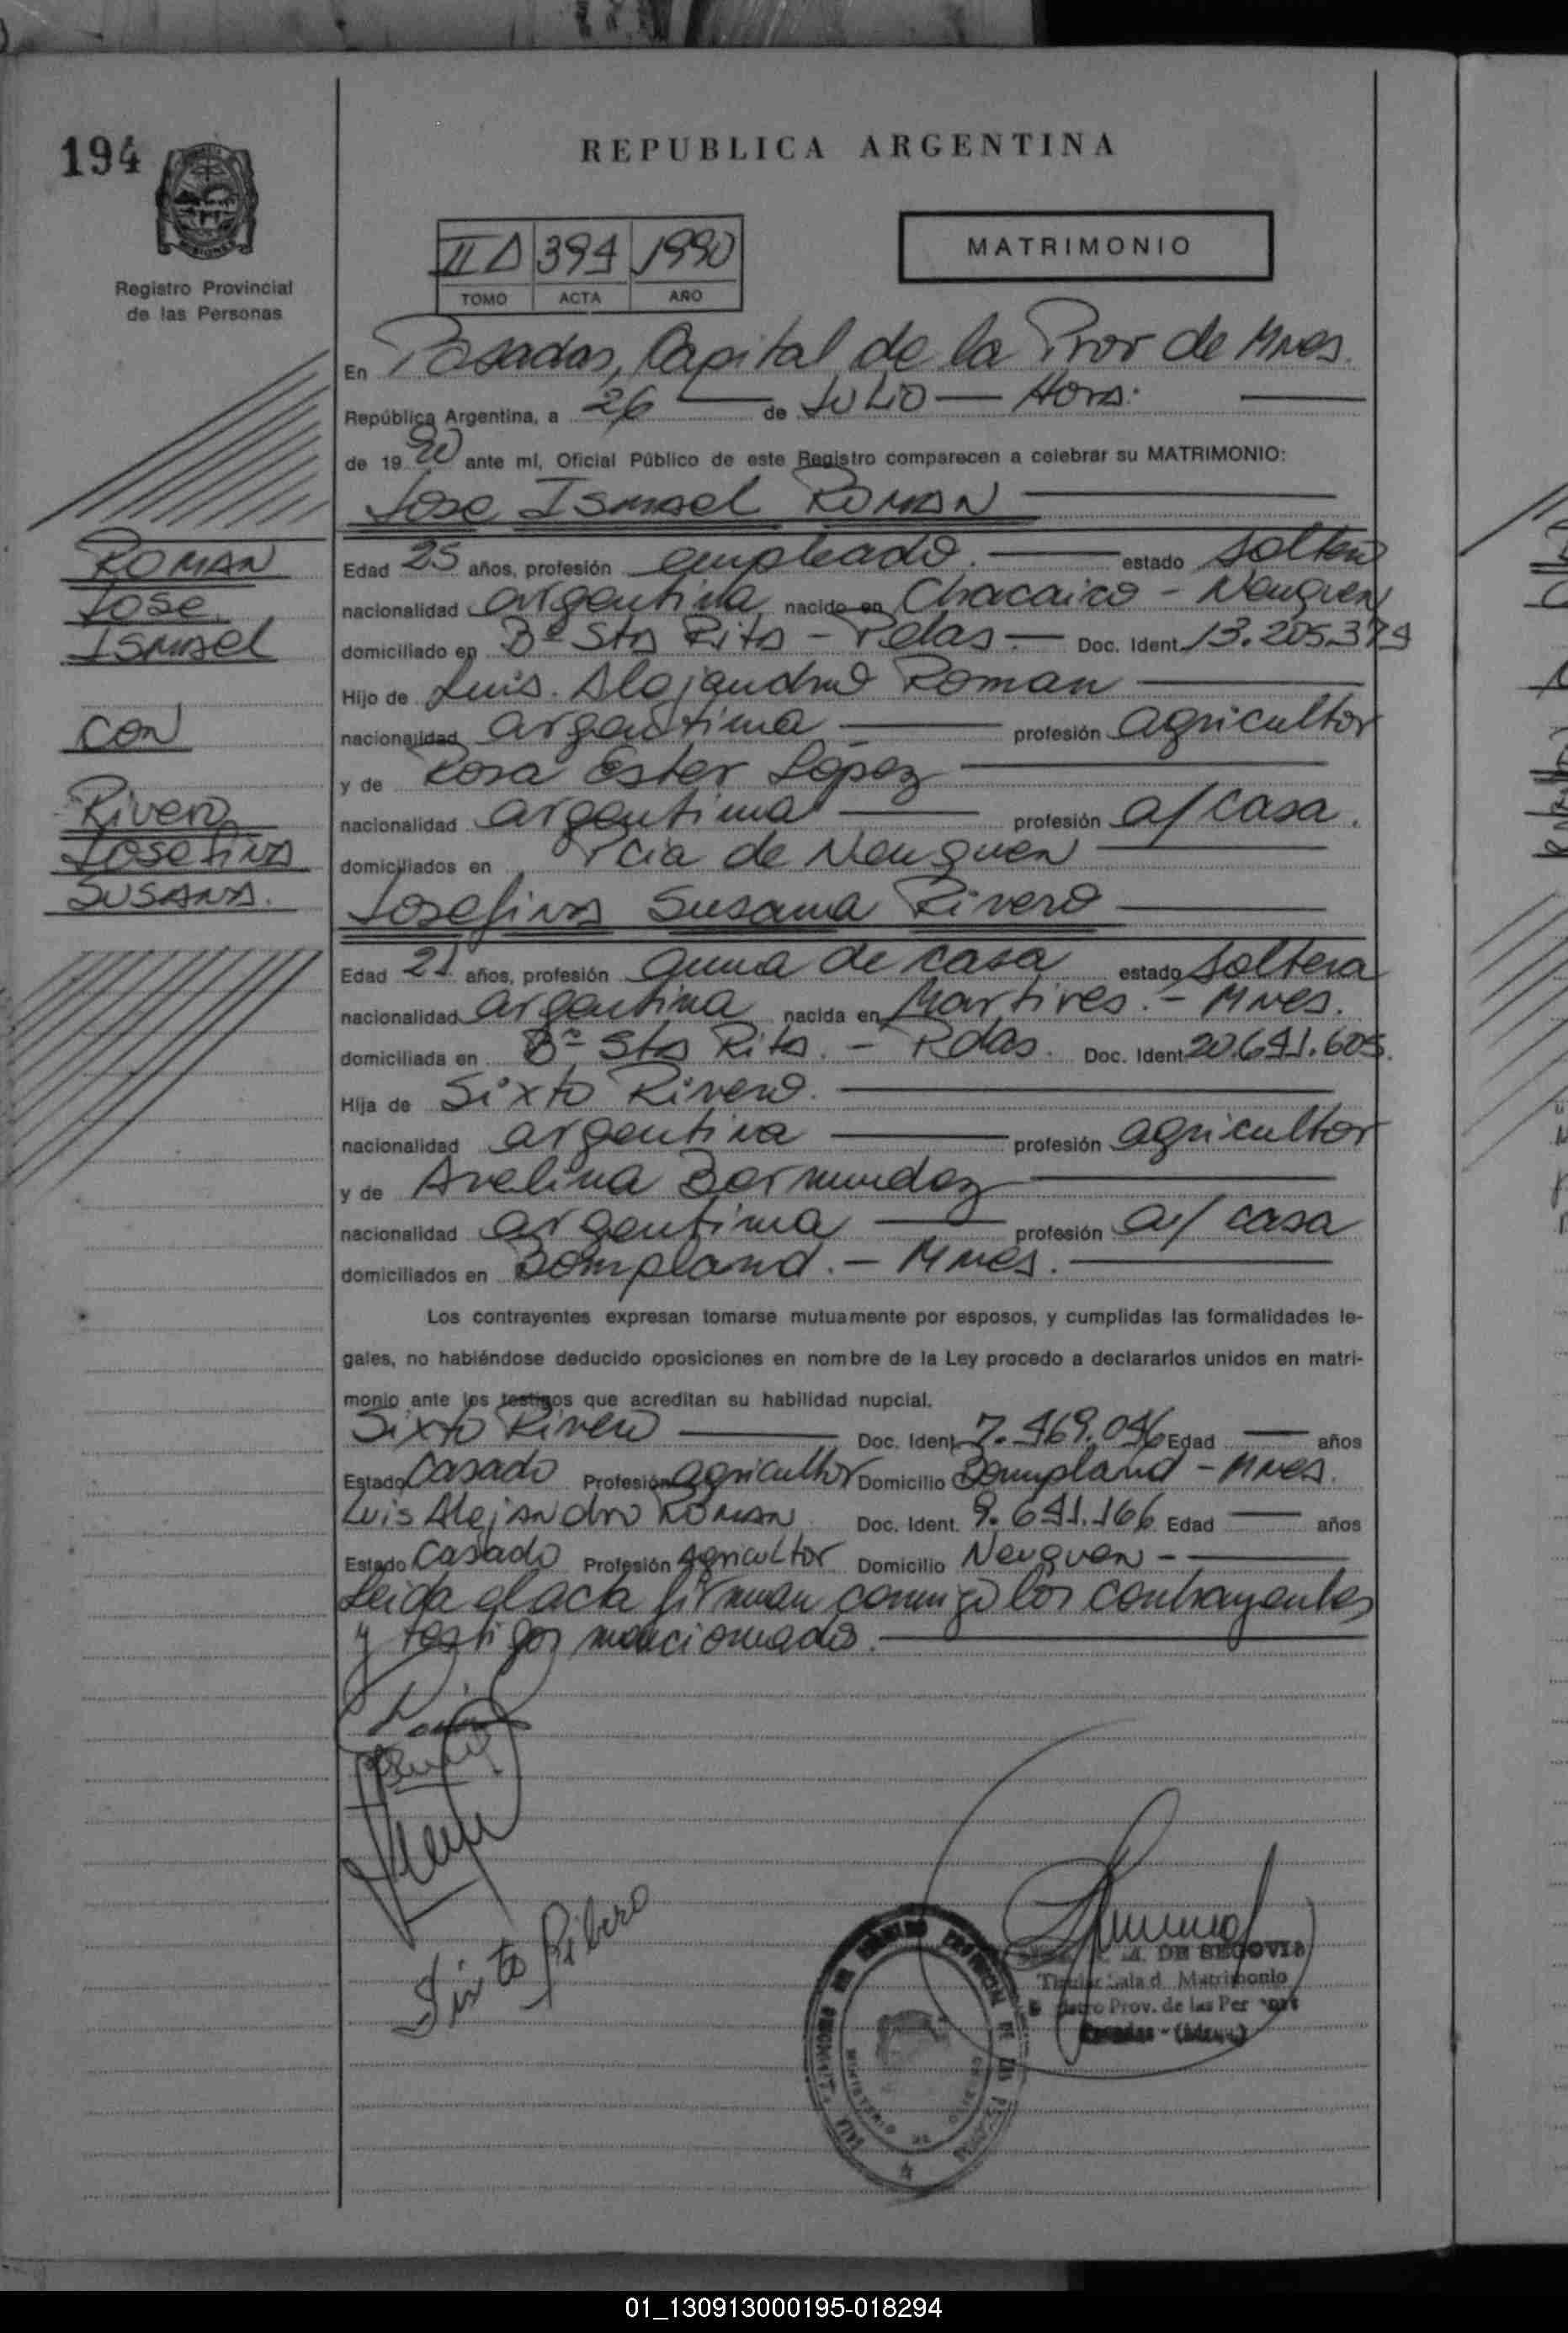 194
REPUBLICA ARGENTINA
Registro Provincial
de las Personas
II A 394 1990
TOMO ACTA AÑO
MATRIMONIO
En Posadas, Capital de la Prov de Mnes.
República Argentina, a 26 de JULIO — Hora:
de 19 90 ante mí, Oficial Público de este Registro comparecen a celebrar su MATRIMONIO:
Jose Ismael ROMAN
Edad 25 años, profesión empleado. estado soltero
nacionalidad argentina nacido en Chacaico - Neuquen
domiciliado en Bº Sta Rita - Pdas. Doc. Ident. 13.205.379
Hijo de Luis Alejandro Roman
nacionalidad argentina profesión agricultor
y de Rosa Ester López
nacionalidad argentina profesión a/ casa.
domiciliados en Pcia de Neuquen
Josefina Susana Rivero
Edad 21 años, profesión ama de casa estado soltera
nacionalidad argentina nacida en Martires. - Mnes.
domiciliada en Bº Sta Rita. - Pdas. Doc. Ident. 20.641.605.
Hija de Sixto Rivero.
nacionalidad argentina profesión agricultor
y de Avelina Bermundez
nacionalidad argentina profesión a/ casa
domiciliados en Bompland. - Mnes.
Los contrayentes expresan tomarse mutuamente por esposos, y cumplidas las formalidades le-
gales, no habiéndose deducido oposiciones en nombre de la Ley procedo a declararlos unidos en matri-
monio ante los testigos que acreditan su habilidad nupcial.
Sixto Rivero Doc. Ident. 7.469.046 Edad — años
Estado Casado Profesión agricultor Domicilio Bompland - Mnes.
Luis Alejandro ROMAN Doc. Ident. 9.641.166 Edad — años
Estado Casado Profesión Agricultor Domicilio Neuquen -
Leida el acta firman conmigo los contrayentes
y testigos mencionados.
ROMAN
Jose
ISMAEL
CON
Rivero
Josefina
SUSANA.
Sixto Ribero
DE SEGOVIA
Titular Sala d. Matrimonio
Prov. de las Per
MINISTERIO DE
01_130913000195-018294